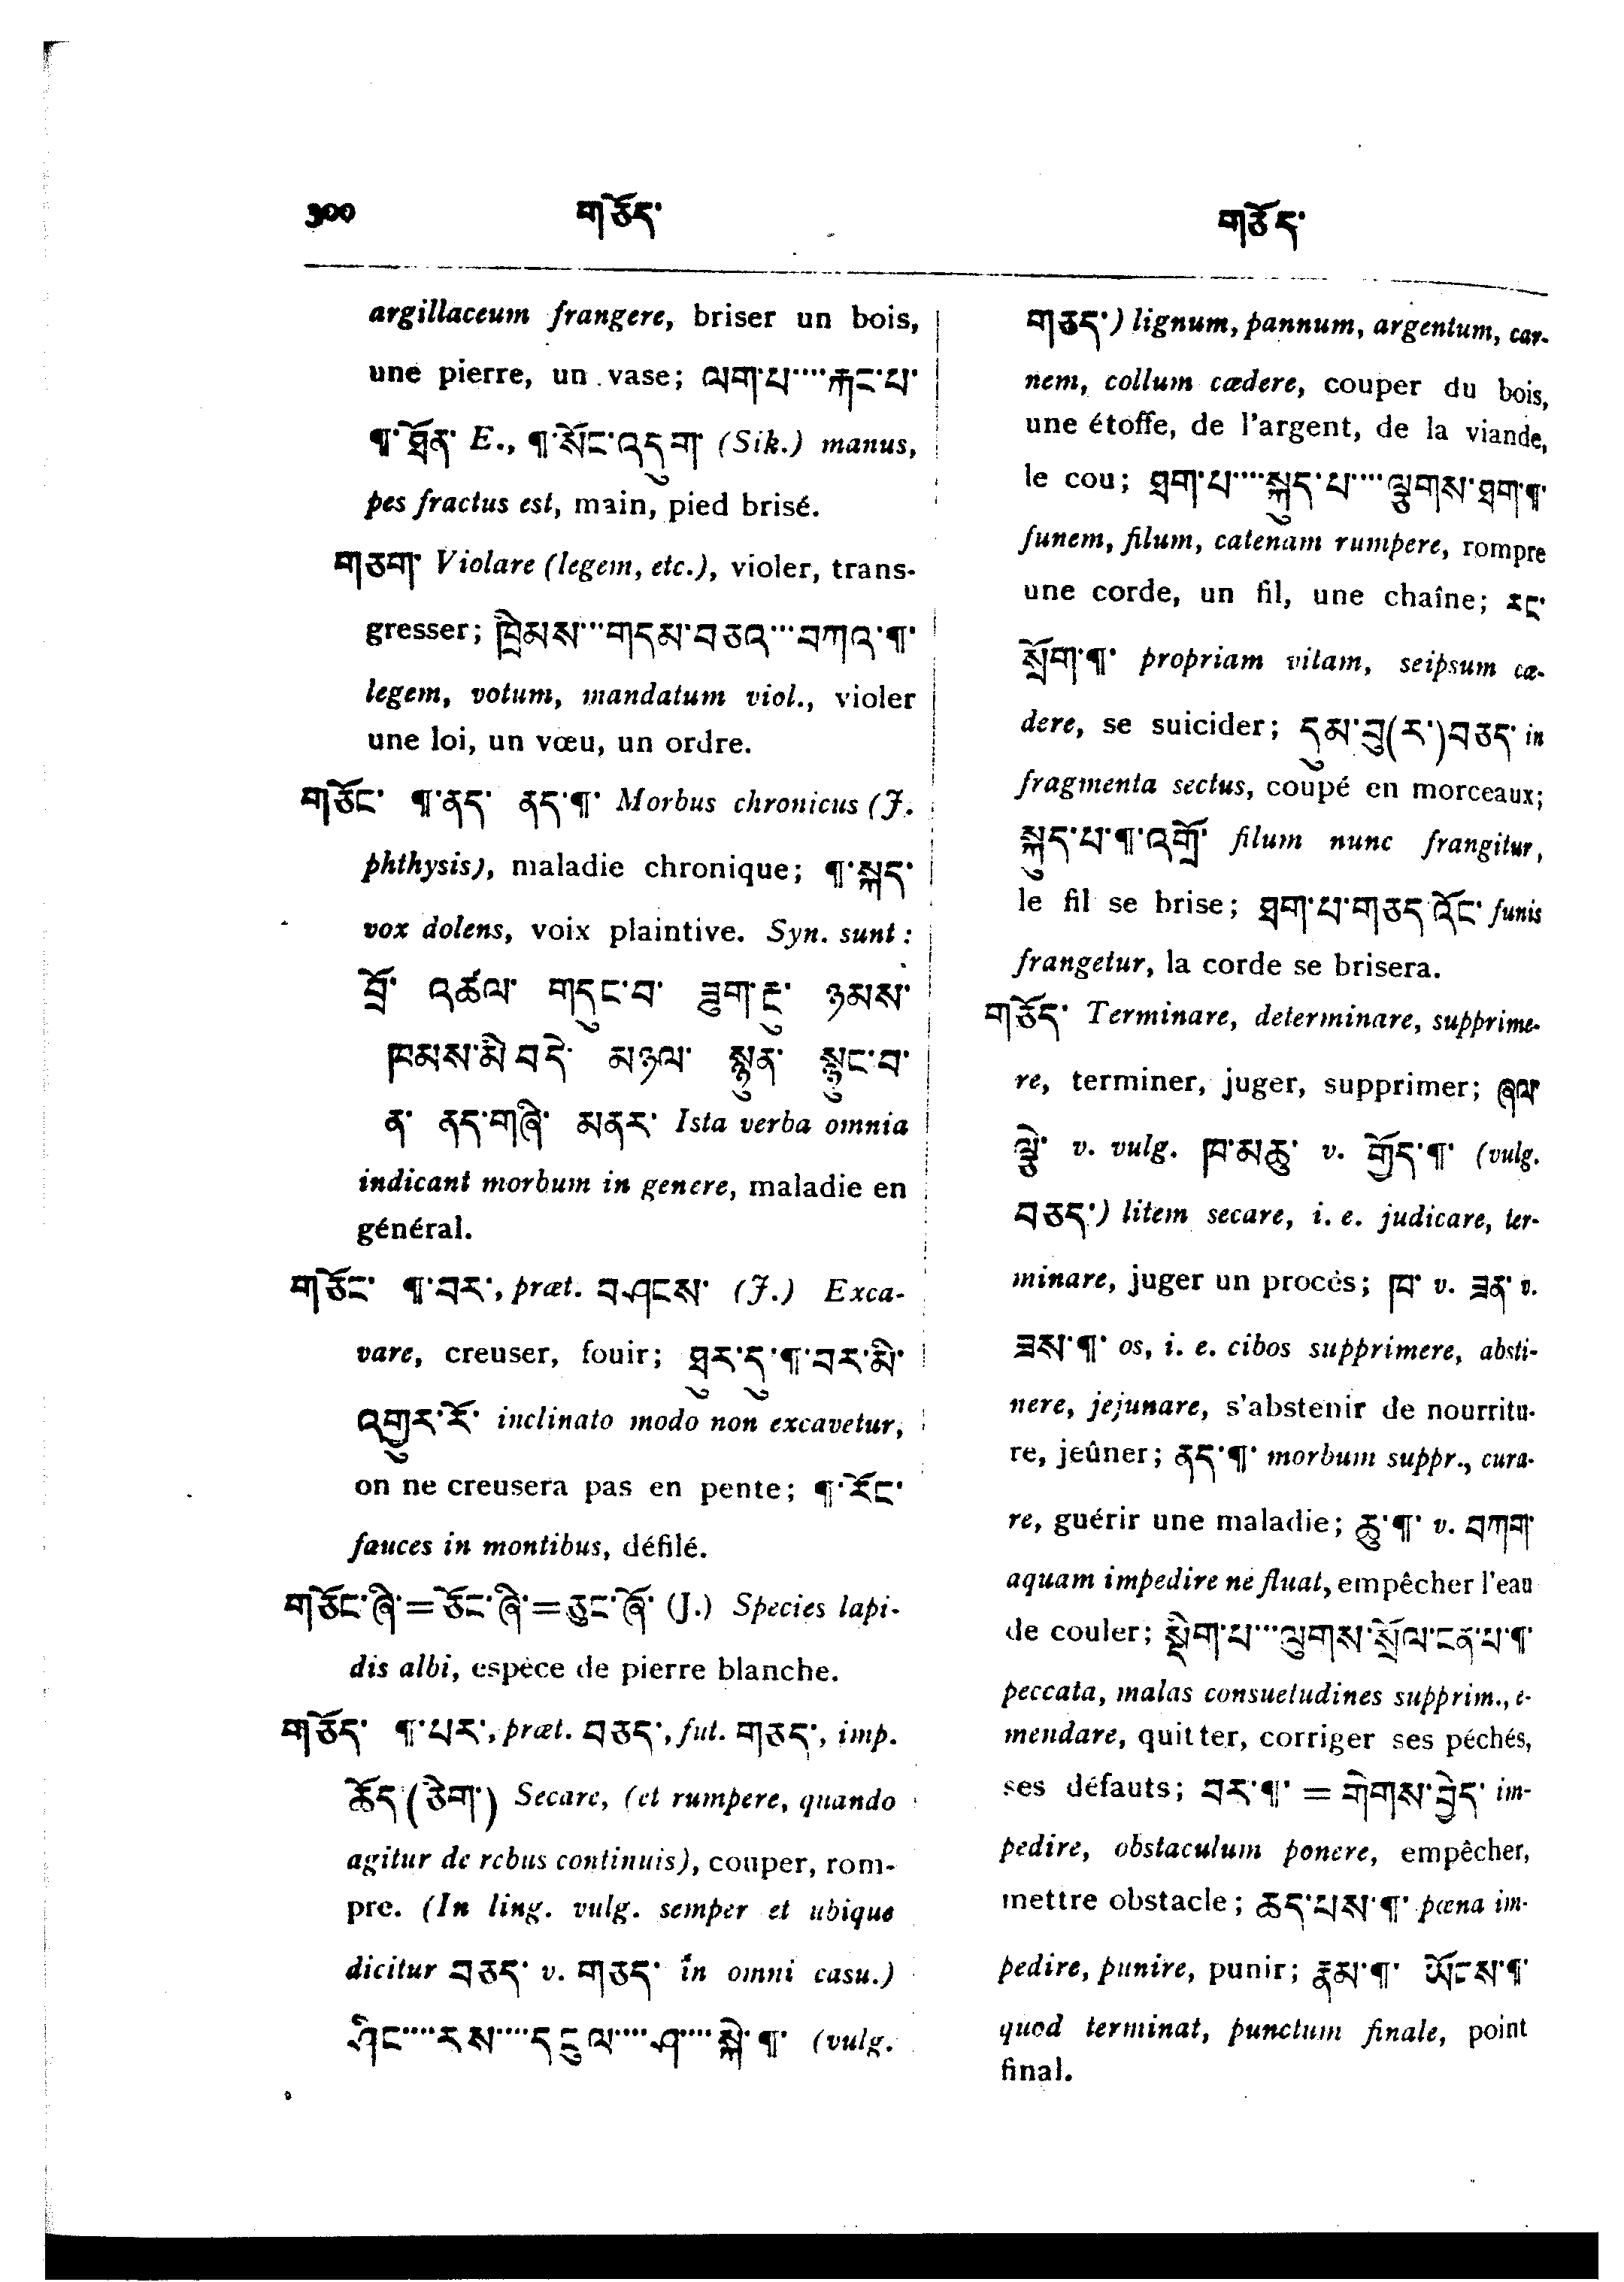 300 གཅོད་ གཅོད་
argillaceum frangere, briser un bois,
une pierre, un vase; ལག་པ་···རྐང་པ་
¶་ཐོན་ E., ¶་སོང་འདུག (Sik.) manus,
pes fractus est, main, pied brisé.
གཅག་ Violare (legem, etc.), violer, trans-
gresser; ཁྲིམས་··གདམ་བཅའ་··བཀའ་¶་
legem, votum, mandatum viol., violer
une loi, un vœu, un ordre.
གཅོང་ ¶་ནད་ ནད་¶་ Morbus chronicus (J.
phthysis), maladie chronique; ¶་སྐད་
vox dolens, voix plaintive. Syn. sunt:
བྲོ་ འཚལ་ གདུང་བ་ ཟུག་རྔུ་ ཉམས་
ཁམས་མི་བདེ་ མཉལ་ སྙུན་ སྙུང་བ་
ན་ ནད་གཞི་ མནར་ Ista verba omnia
indicant morbum in genere, maladie en
général.
གཅོང་ ¶་བར་, præt. བཤངས་ (J.) Exca-
vare, creuser, fouir; ཐུར་དུ་¶་བར་མི་
འགྱུར་རོ་ inclinato modo non excavetur,
on ne creusera pas en pente; ¶་རོང་
fauces in montibus, défilé.
གཅོང་ཞི་=ཅོང་ཞི་=ཅུང་ཞོ་ (J.) Species lapi-
dis albi, espèce de pierre blanche.
གཅོད་ ¶་པར་, præt. བཅད་, fut. གཅད་, imp.
ཆོད (ཅིག་) Secare, (et rumpere, quando
agitur de rebus continuis), couper, rom-
pre. (In ling. vulg. semper et ubique
dicitur བཅད་ v. གཅད་ in omni casu.)
ཤིང་···རས་···དངུལ་···ཤ་···སྐེ་¶་ (vulg.
གཅད་) lignum, pannum, argentum, car-
nem, collum cædere, couper du bois,
une étoffe, de l'argent, de la viande,
le cou; ཐག་པ་···སྐུད་པ་···ལྕགས་ཐག་¶་
funem, filum, catenam rumpere, rompre
une corde, un fil, une chaîne; རང་
སྲོག་¶་ propriam vitam, seipsum cæ-
dere, se suicider; དུམ་བུ(ར་)བཅད་ in
fragmenta sectus, coupé en morceaux;
སྐུད་པ་¶་འགྲོ་ filum nunc frangitur,
le fil se brise; ཐག་པ་གཅད་འོང་ funis
frangetur, la corde se brisera.
གཅོད་ Terminare, determinare, supprime-
re, terminer, juger, supprimer; ཞལ་
ལྕེ་ v. vulg. ཁ་མཆུ་ v. གྱོད་¶་ (vulg.
བཅད་) litem secare, i. e. judicare, ter-
minare, juger un procès; ཁ་ v. ཟན་ v.
ཟས་¶་ os, i. e. cibos supprimere, absti-
nere, jejunare, s'abstenir de nourritu-
re, jeûner; ནད་¶་ morbum suppr., cura-
re, guérir une maladie; ཆུ་¶་ v. བཀག་
aquam impedire ne fluat, empêcher l'eau
de couler; སྡིག་པ་··ལུགས་སྲོལ་ངན་པ་¶་
peccata, malas consuetudines supprim., e-
mendare, quitter, corriger ses péchés,
ses défauts; བར་¶་ = གེགས་བྱེད་ im-
pedire, obstaculum ponere, empêcher,
mettre obstacle; ཆད་པས་¶་ pœna im-
pedire, punire, punir; རྣམ་¶་ ཡོངས་¶་
quod terminat, punctum finale, point
final.